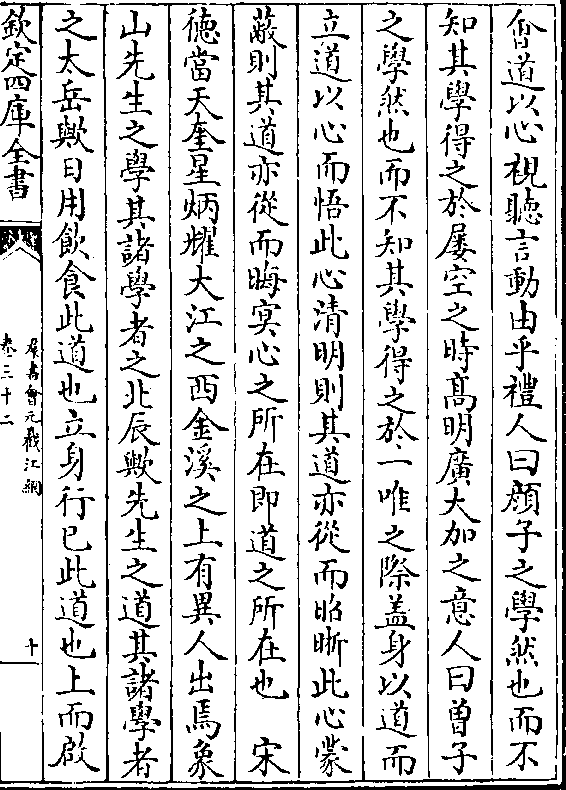 會道以心視聽言動由乎禮人曰顔子之學然也而不
知其學得之於屢空之時髙明廣大加之意人曰曾子
之學然也而不知其學得之於一唯之際盖身以道而
立道以心而悟此心清明則其道亦從而昭晣此心蒙
蔽則其道亦從而晦冥心之所在即道之所在也　宋
徳當天奎星炳燿大江之西金溪之上有異人出焉象
山先生之學其諸學者之北辰歟先生之道其諸學者
之太岳歟日用飲食此道也立身行已此道也上而啟
欽定四庫全書
羣書會元截江網
卷三十二
十